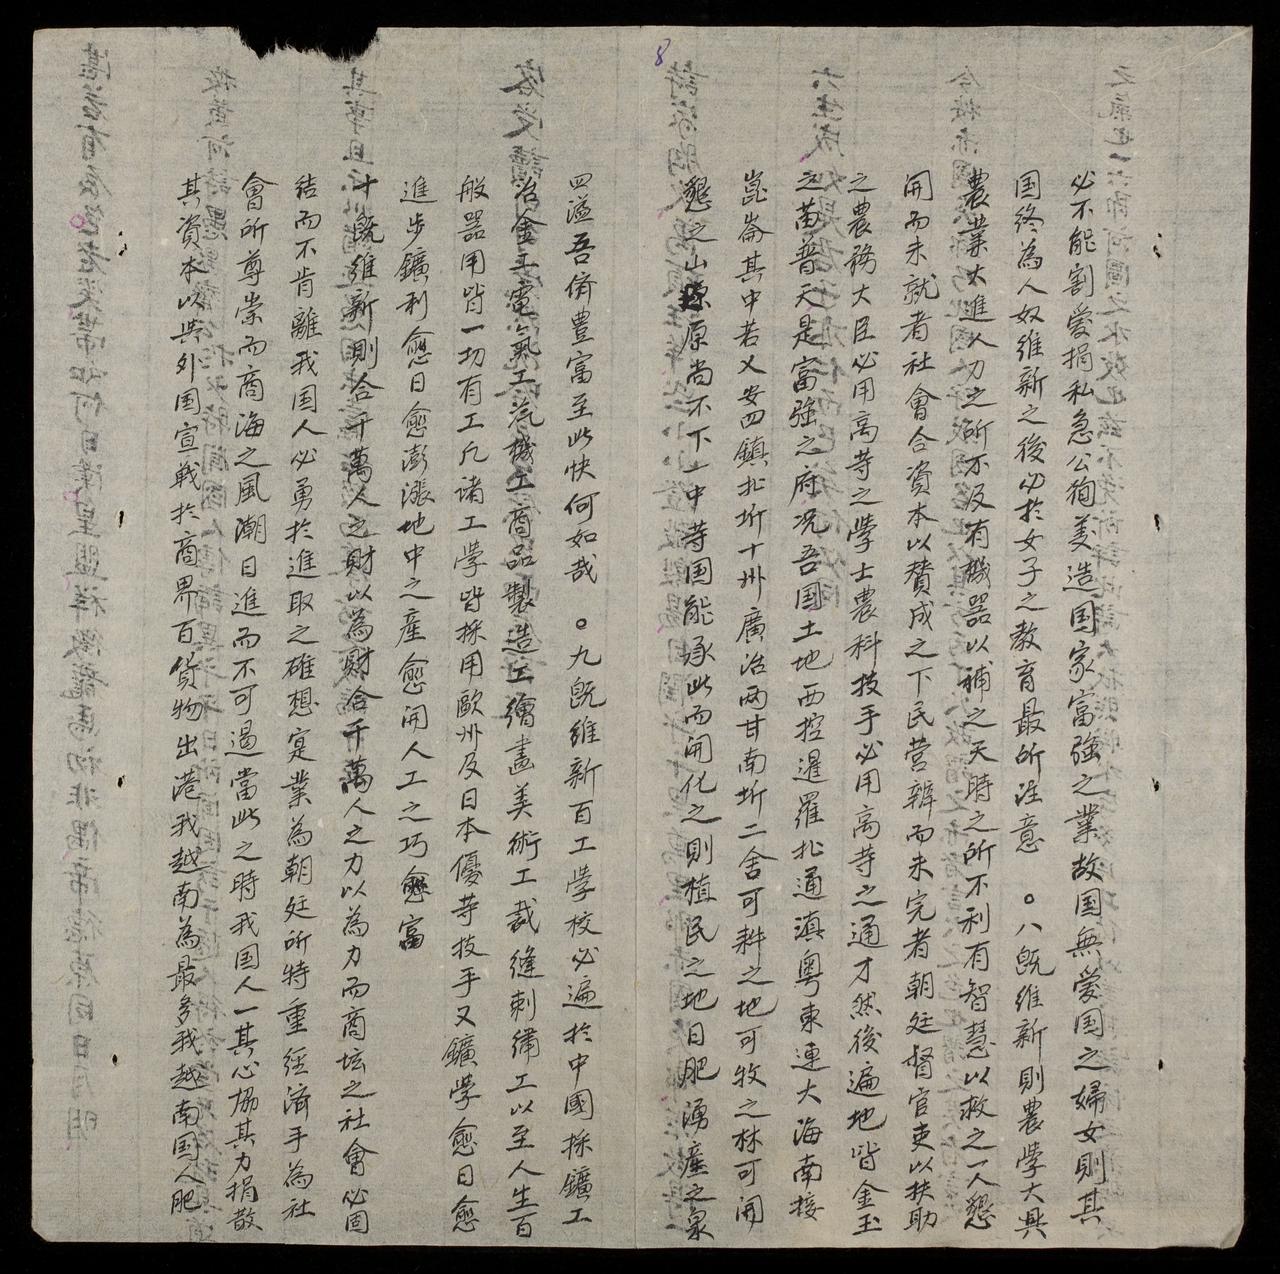 8
必不能割愛捐私急公狥义造国家富強之業故国無愛国之婦女則其
国終為人奴維新之後必於女子之教育最所注意 。八既維新則農學大興
農業大進人力之所不及有機器以補之天時之所不利有智慧以救之一人懇
開而未就者社會合資本以賛成之下民营辨而未完者朝廷督官吏以扶助
之農務大臣必用高等之學士農科技手必用高等之通才然後遍地皆金玉
之苗普天是富強之府况吾国土地西控暹羅北通滇粤東連大海南接
崑崙其中若乂安四鎮北圻十州廣治兩甘南圻二舍可耕之地可牧之林可開
懇之山原尚不下一中等国能承此而開化之則植民之地日肥湧產之泉
四溢吾儕豊富至此快何如哉 。九既維新百工学校必遍於中國採鑛工
冶金工電氣工汽機工商品製造工繪畫美術工裁縫刺繡工以至人生百
般器用皆一切有工凡诸工學皆採用歐州及日本優等技手又鑛学愈日愈
進步鑛利愈日愈澎漲地中之產愈開人工之巧愈富
十既維新則合千萬人之財以為財合千萬人之力以為力而商坛之社會必固
结而不肯離我国人必勇於進取之確想寔業為朝廷所特重經濟手為社
會所尊崇而商海之風潮日進而不可遏當此之時我国人一其心協其力捐散
其資本以與外国宣戦於商界百貨物出港我越南為最多我越南国人肥